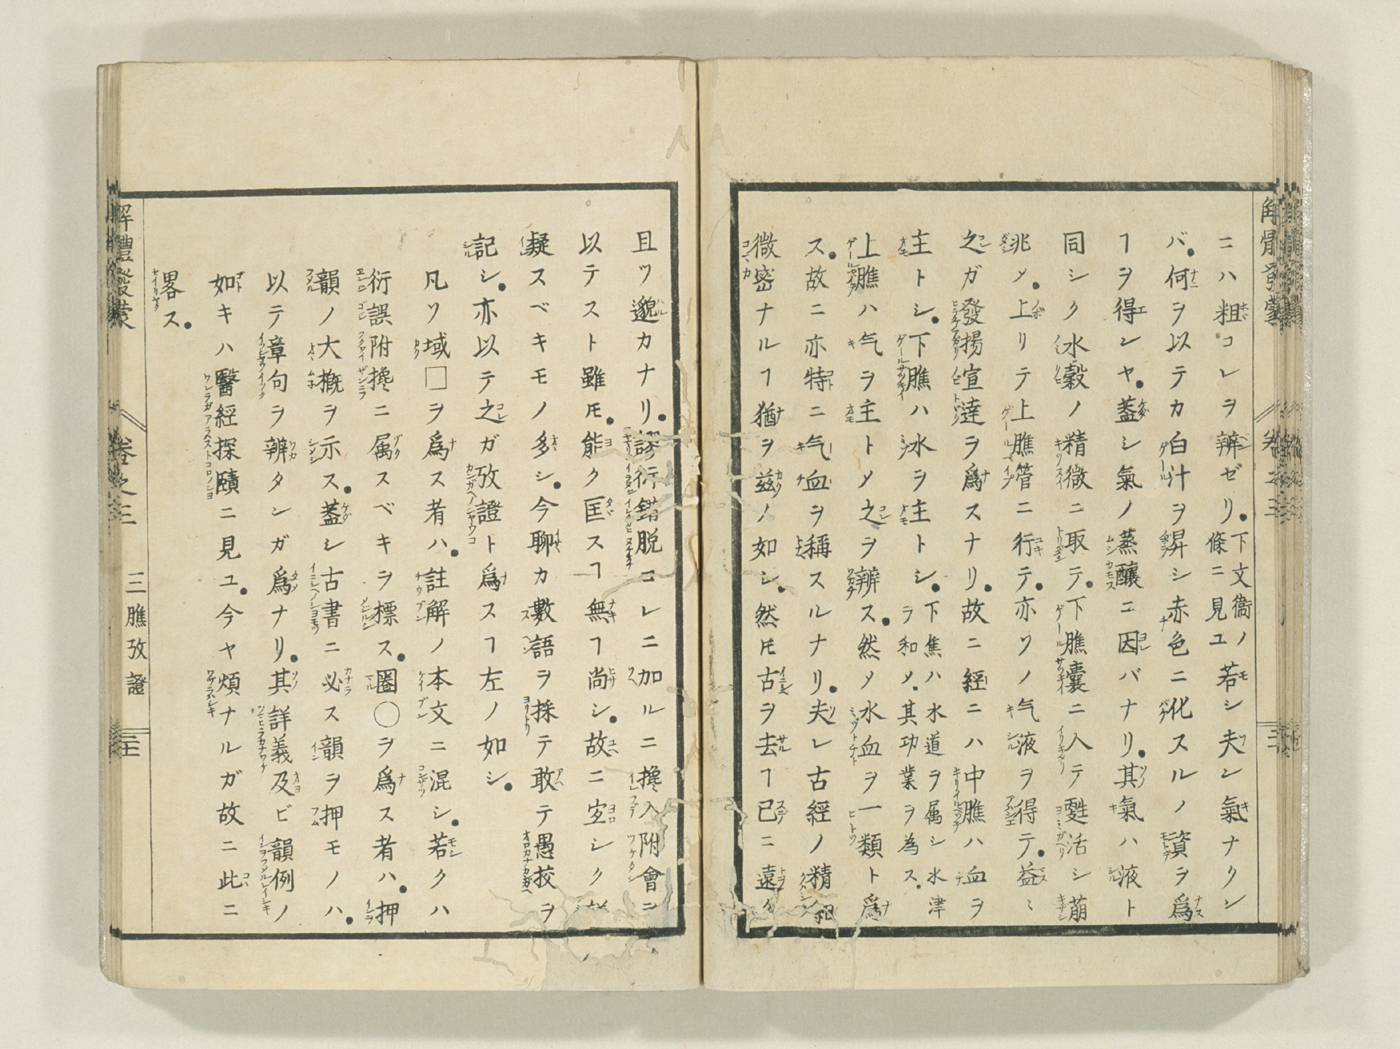 ニハ粗コレヲ辨ゼリ。下文衞ノ條ニ見ユ若シ夫レ氣ナクン
バ。何ヲ以テカ白汁ヲ昇シ赤色ニ化スルノ資ヲ爲
ヿヲ得レヤ。蓋シ氣ノ蒸釀ニ因バナリ。其氣ハ液ト
同シク水穀ノ精微ニ取テ。下膲囊ニ入テ甦活シ萠
兆〆。上リテ上膲管ニ行テ。亦ソノ气液ヲ得テ。益〻
之ガ發揚宣達ヲ爲スナリ。故ニ經ニハ中膲ハ血ヲ
主トシ。下膲ハ水ヲ主トシ。下焦ハ水道ヲ属シ水津ヲ和〆。其功業ヲ為ス。
上膲ハ气ヲ主ト〆之ヲ辨ス。然〆水血ヲ一類ト爲
ス。故ニ亦特ニ气血ヲ稱スルナリ。夫レ古経ノ精
微密ナルヿ猶ヲ茲ノ如シ。然𪜈古ヲ去ヿ已ニ遠ク
且ツ邈カナリ。謬衍錯脱コレニ加ルニ攙入附會
以テスト雖𪜈。能ク匡スヿ無ヿ尚シ。故ニ宜シク
疑スベキモノ多シ。今聊カ數語ヲ採テ敢テ愚挍ヲ
記シ。亦以テ之ガ攷證ト爲スヿ左ノ如シ。
凡ソ域□ヲ爲ス者ハ。註解ノ本文ニ混シ。若クハ
衍誤附攙ニ属スベキヲ標ス。圈○ヲ爲ス者ハ。押
韻ノ大槪ヲ示ス。蓋シ古書ニ必ス韻ヲ押モノハ。
以テ章句ヲ辨タンガ爲ナリ。其詳義及ビ韻例ノ
如キハ醫經探賾ニ見ユ。今ヤ煩ナルガ故ニ此ニ
畧ス。
解體發蒙
卷之三
三膲攷證